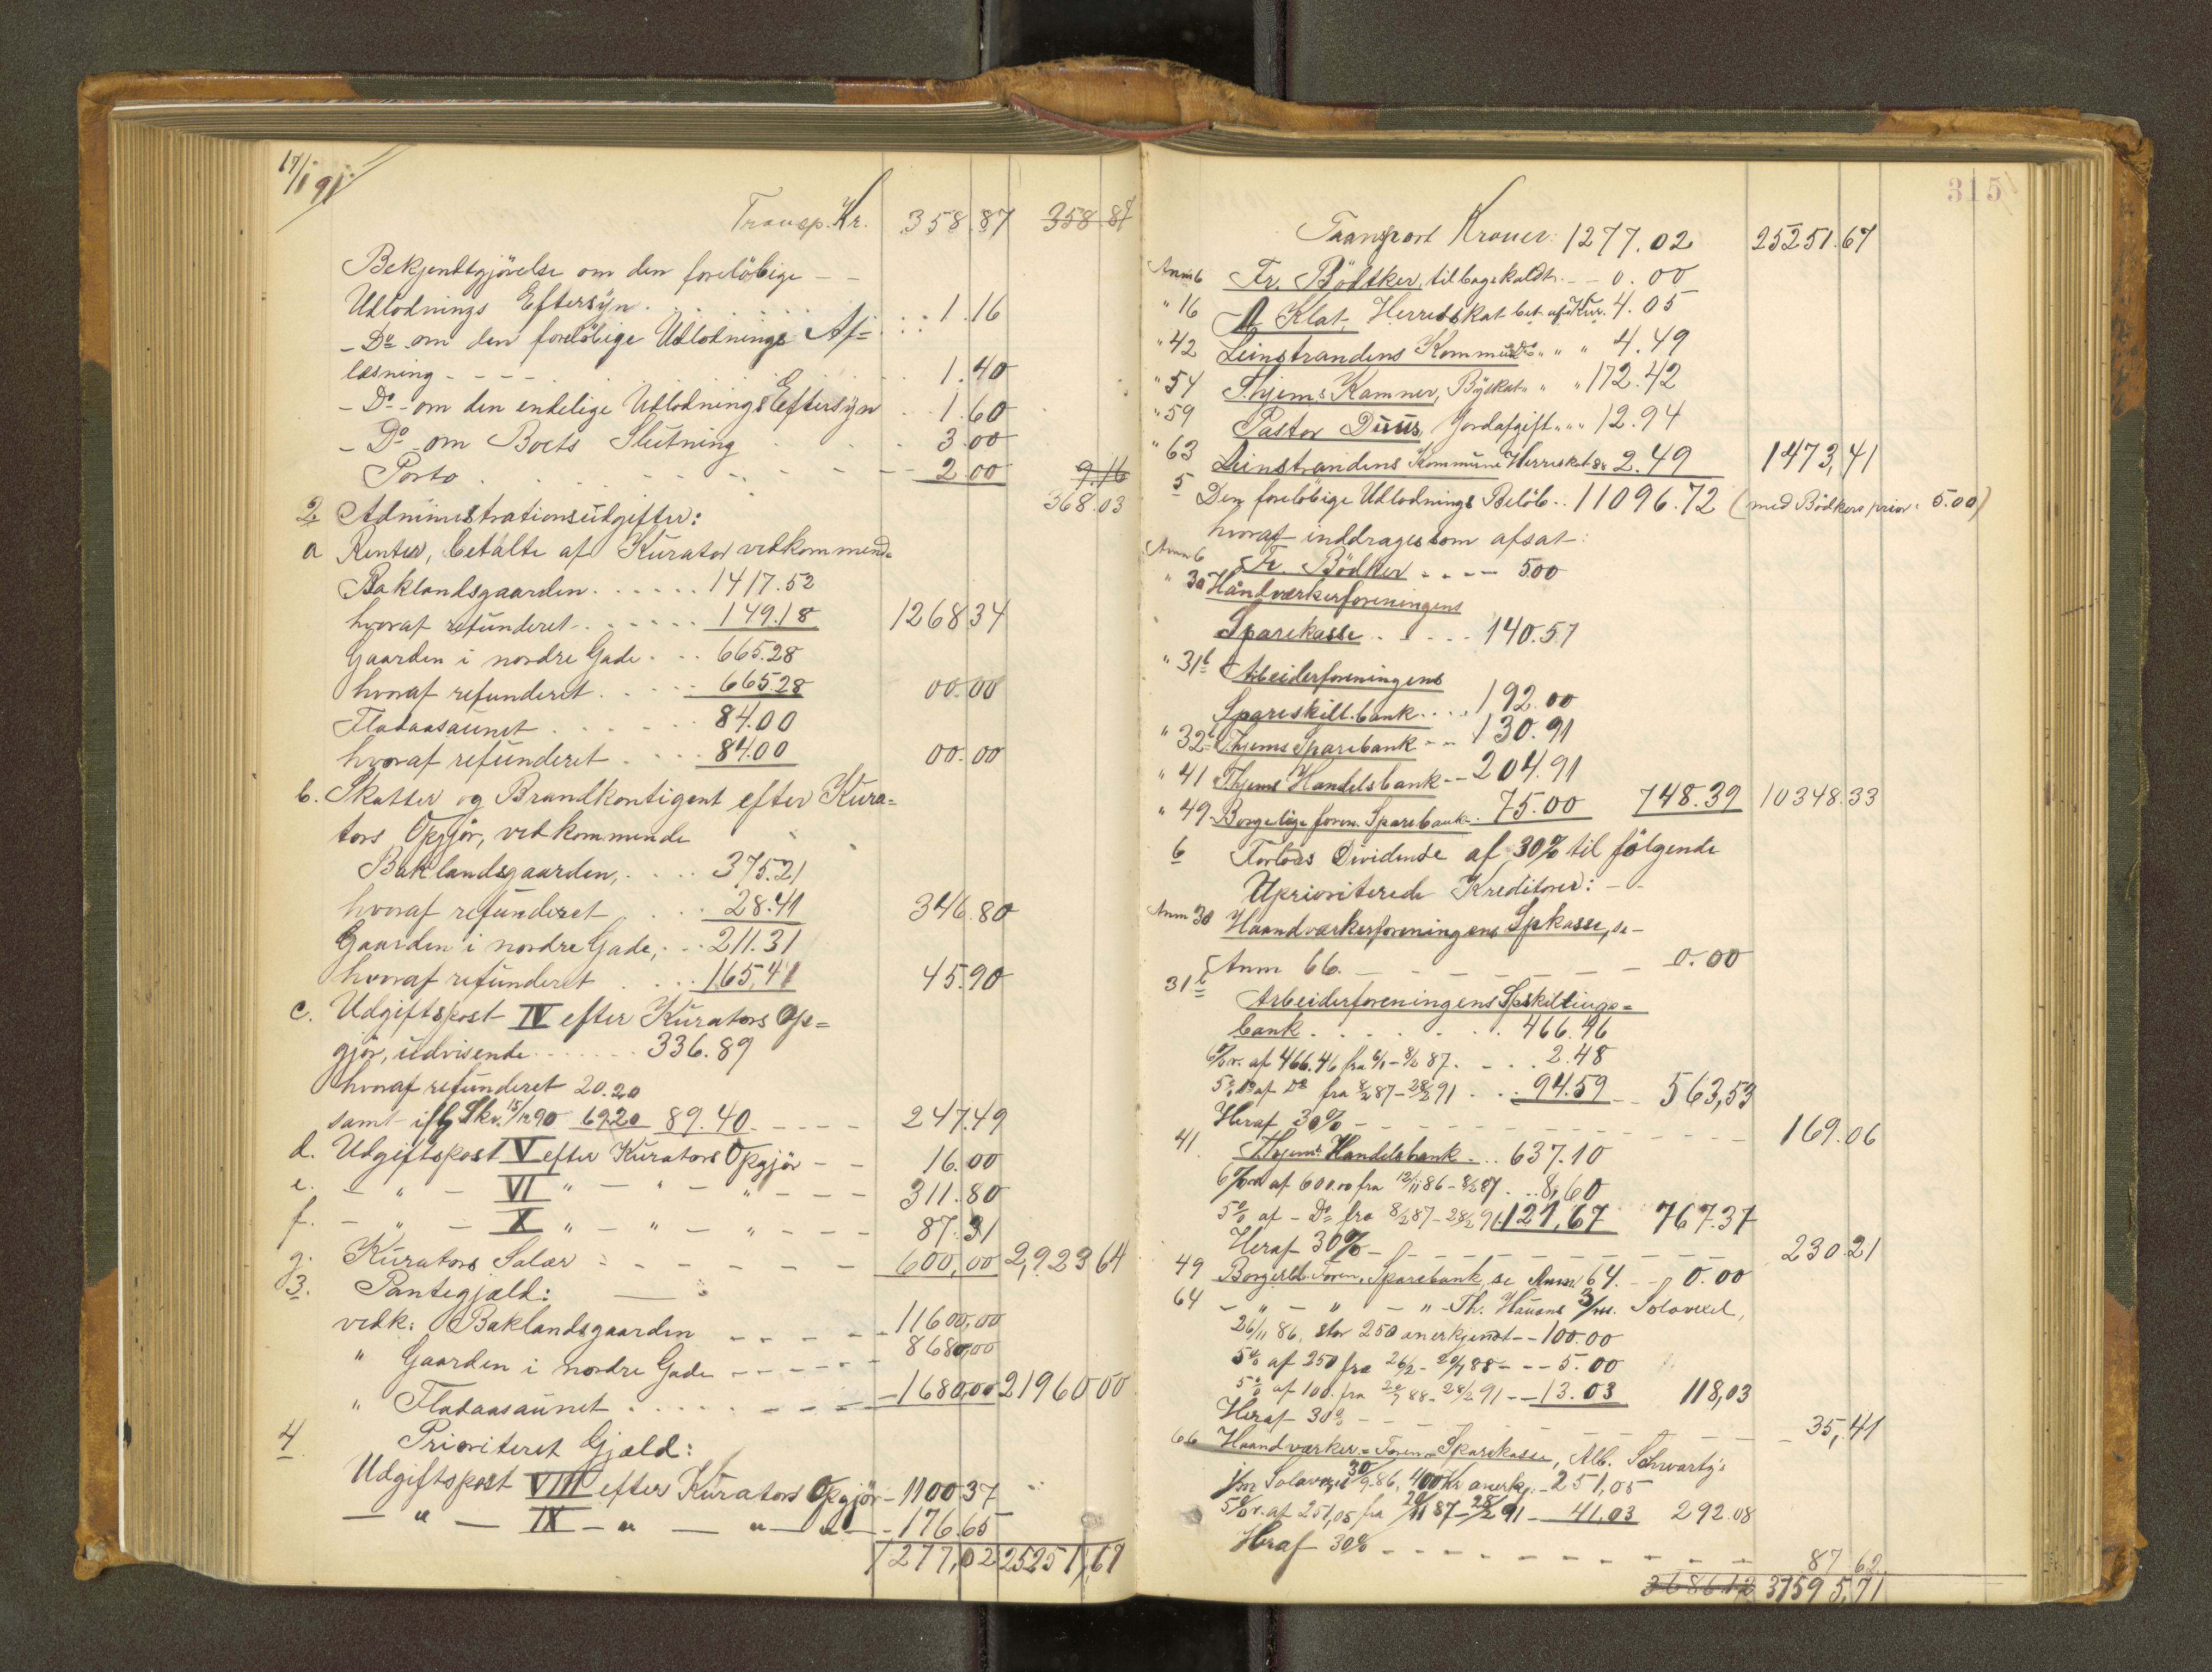 17/1 91.
Transp. Kr. 358.87 358.87
Bekjendtgjörelse om den forelöbige
Udlodnings Eftersyn . . . . 1.16
- Do om den forelöbige Udlodnings Af=
læsning - - - - 1.40
- Do - om den endelige Udlodnings Eftersyn . . 1.60
- Do - om Boets Slutning . . . 3.00
Porto . . . . . 2.00 9.16
368.03
2 Administrationsudgifter:
a Renter, betalte af Kurator vedkommend=
Baklandsgaarden . . . . . . 1417.52
hvoraf refunderet . . . . . . 149.18 1268.34
Gaarden i nordre Gade . . . 665.28
hvoraf refunderet . . . . . 665.28 00.00
Fladaasaunet . . . . 84.00
hvoraf refunderet . . . 84.00 00.00
b. Skatter og Brandkontigent efter Kura=
tors Opgjör, vedkommende
Baklandsgaarden, . . . . 375.21
hvoraf refunderet . . . 28.41 346.80
Gaarden i nordre Gade, . . . 211.31
hvoraf refunderet . . . 165,41 45.90
c. Udgiftspost IV efter Kurators Op=
gjör, udvisende . . . . . . 336.89
hvoraf refunderet 20.20
samt iflg Skv. 15/12 90 69.20 89.40 - - - - 247.49
d. Udgiftspost V efter Kurators Opgjör - - 16.00
e. - " - VI " - " - " - - - 311.80
f. - " - X " - " - " - - - 87.31
g. Kurators Salær - - - - - - 600,00 2,923 64
3. Pantegjæld:
vedk: Baklandsgaarden - - - - - 11600,00
" Gaarden i nordre Gade - - - - - 8680,00
" Fladaasaunet . . . . . - - - - 1680,00 21960 00
4 Prioriteret Gjæld:
Udgiftspost VIII efter Kurators Opgjör - 1100 37
- " - IX - " - " - " - 176.65
1277,02 25251,67
315
Transport Kroner: 1277.02 25251.67
Anm 6 Fr. Bödtker, tilbagekaldt. - - 0.00
" 16 Klæt, Herredskat bet. af Kur. 4.05
" 42 Leinstrandens Kommune Do " " 4.49
" 54 Thjems Kæmner, Byskat " " 172.42
" 59 Pastor Duus, Jordafgift " " " 12.94
" 63 Leinstrandens Kommune Herreskat 2.49 1473,41
5 Den forelöbige Udlodnings Belöb . . 11096.72 (med Bödkers prior. 5.00)
hvoraf inddrages som afsat:
Anm 6 Fr. Bödker . - - - 5.00
" 30 Haandværkerforeningens
Sparekasse . . . . . 140.57
" 31 b Arbeiderforeningens
Spareskill.bank . . . 192.00
" 32 b Thjems Sparebank - - 130.91
" 41 Thjems Handelsbank - - 204.91
" 49 Borgerlige foren. Sparebank . . 75.00 748.39 10348.33
6 Forlods Dividende af 30% til fölgende
Uprioriterede Kreditorer: - -
Anm 30 Haandværkerforeningens Spkasse, se -
Anm 66. - - - - - - - 0.00
31 b Arbeiderforeningens Spskillings=
bank . . . . . . . 466.46
6% r. af 466.46 fra 6/1 - 8/2 87. - . . . 2.48
5% do af Do fra 8/2 87 - 28/2 91 . . . 94.59 - - 563,53
Heraf 30% - - - - - - - - 169.06
41. Thjems Handelsbank . . . 637.10
6% r. af 600.00 fra 12/11 86 - 8/2 87 . . . 8,60
5% af - Do fra 8/2 87 - 28/2 91 . 121,67 767.37
Heraf 30% - - - - - - - - 230.21
49 Borgerl. Foren. Sparebank, se Anm 64. - - 0.00
64 - " - " - " - Th. Hauans 3/m. Solavexel,
26/11 86, stor 250 anerkjendt - - 100.00
5% af 250 fra 26/2 - 20/7 88 - - - 5.00
5% af 100. fra 20/7 88 - 28/2 91 - - 13.03 118,03
Heraf 30% - - - - - - 35,41
66 Haandværker=Foren. Sparekasse, Alb. Schwartz's
Solavexel 30/9 86, 400 Kr anerkj. - 251,05
5% r. af 251,05 fra 20/11 87 - 28/2 91 - 41,03 292.08
Heraf 30% - - - - - - - - - 87.62
36861.2 37595,71